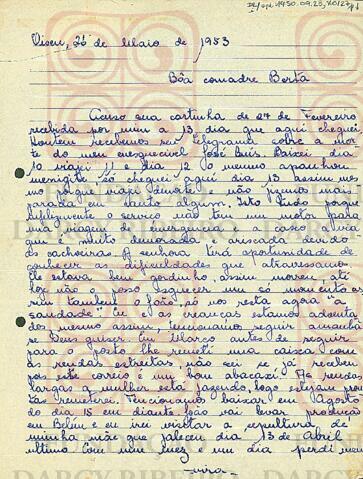 DR/opi.1950.09.25,X0/27 p1
Viseu, 26 de Maio de 1953
Bôa comadre Berta
Acuso sua cartinha de 24 de Fevereiro
recebida por mim a 13, dia que aqui cheguei
Hontem recebemos seu telegrama sobre a mor-
te do meu enesquecivel José Luis. Baixei, dia
10 viajei 11 e dia 12 do mesmo apanhou
menigite só cheguei aqui dia 13 assim mes-
mo porque viajei denoite e não fizemos mais
parada em canto algum. Isto tudo porque
infelizmente o serviço não tem um motor para
uma viagem de emergencia e a casco a via
gem é muito demorada e ariscada devido
as cachoeiras. A senhora terá oportunidade de
conhecer as dificuldades que atravessamos.
Ele estava bem gordinho, assim morreu, até
hoje não o posso esquecer um só momento as-
sim tambem o João, só nos resta agora "a
saudade". Eu e as creanças estamos adoenta
dos mesmo assim, tencionamos seguir amanhã
se Deus quiser. Em Março antes de seguir
para o posto lhe remeti uma caixa com
as rendas estreitas, não sei se já recebeu
pois este correio é um bom abacaxi. As rendas
largas a mulher está fazendo, logo estejam pron-
tas remeterei. Tencionamos baixar em Agosto
do dia 15 em diante João vai levar produção
em Belem e eu irei visitar a sepultura de
minha mãe que faleceu dia 13 de abril
ultimo com um mez e um dia perdi meu
-vira-